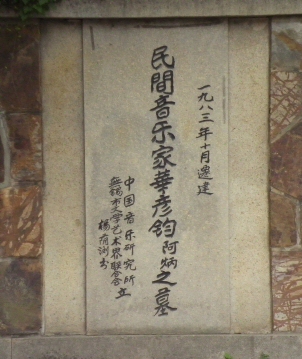 一九八三年十月遷建
民間音乐家華彦鈞阿炳之墓
中国音乐研究所
無錫市文学艺术界联合会
立
楊荫浏书